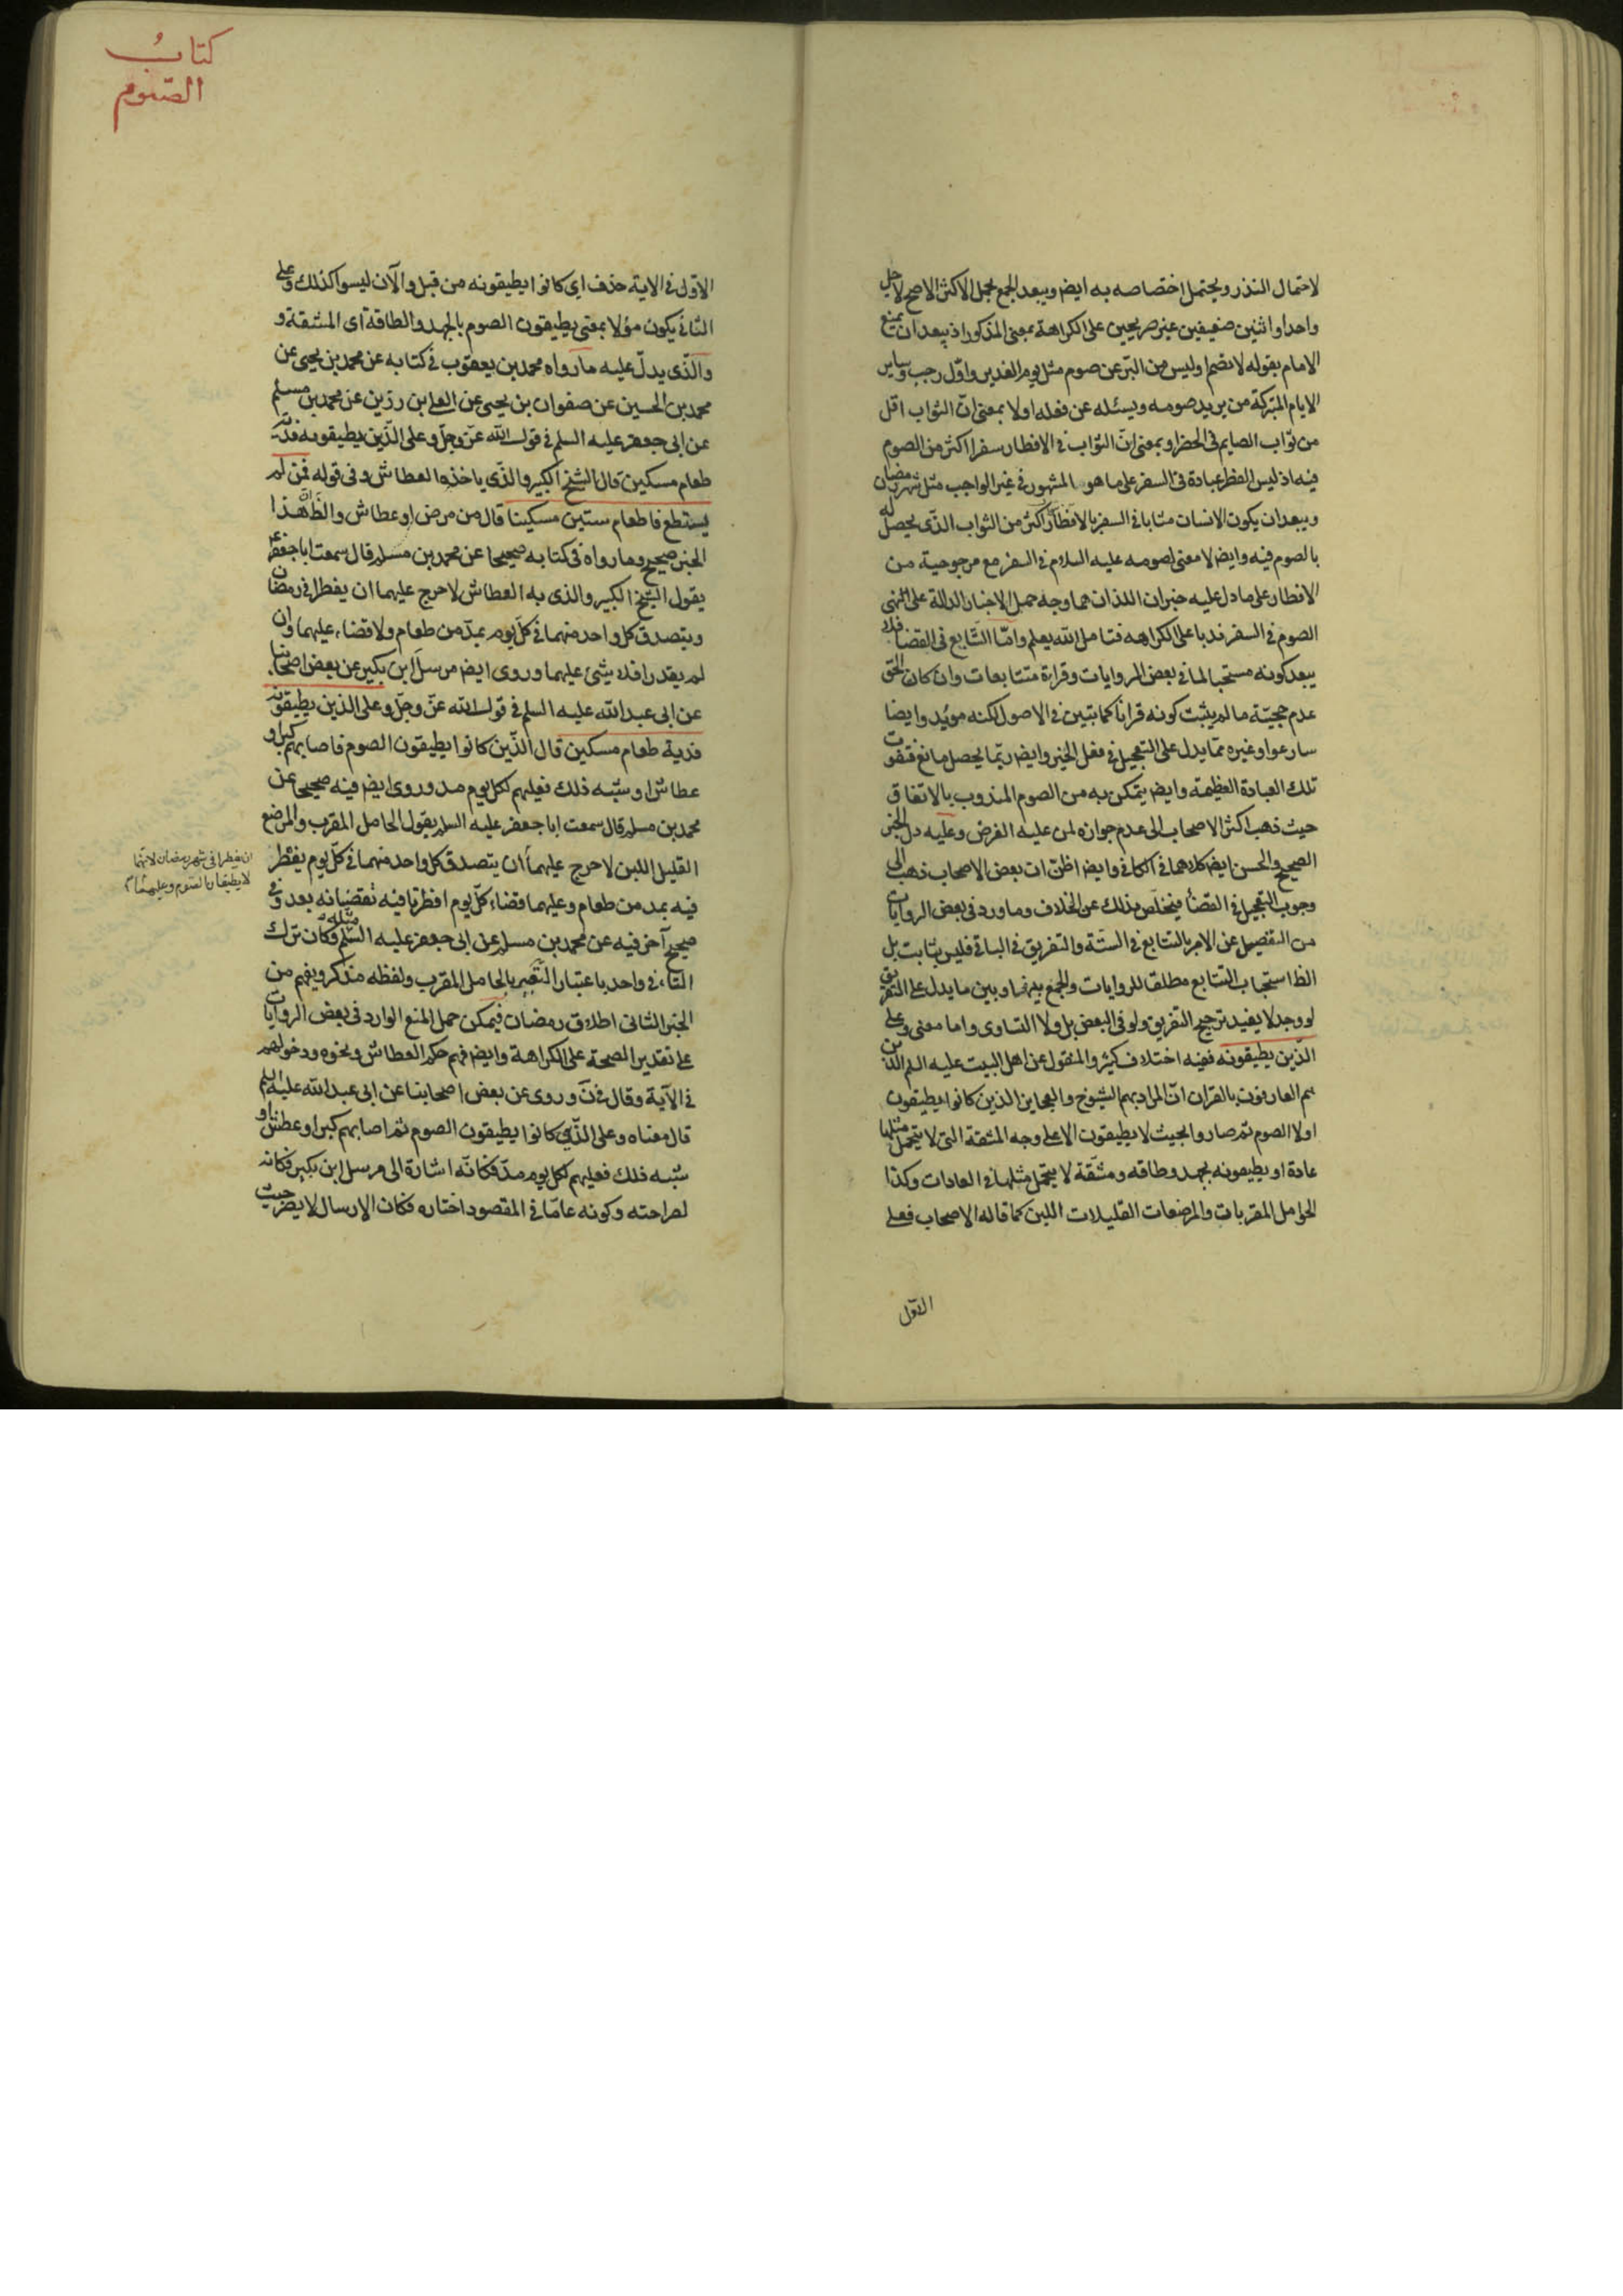 لاحتمال النذر ويحتمل اختصاصه به ايضا ويبعد الجمع بحمل الاكثر الاصح لاجل
واحد او اثنين ضعيفين غير صريحين على الكراهة بمعنى المذكور اذ يبعد ان يمنع
الامام بقوله لا تصم او ليس من البر عن صوم مثل يوم الغدير واوّل رجب وساير
الايام المتبركة من يريد صومه ويسئله عن فعله اولا بمعنى انّ الثواب اقل
من ثواب الصايم فى الحضر او بمعنى انّ الثواب فى الافطار سفرا اكثر من الصوم
فيه اذ ليس الفطر عبادة فى السفر على ما هو المشهور فى غير الواجب مثل شهر رمضان
ويبعد ان يكون الانسان مثابا فى السفر بالافطار اكثر من الثواب الذى يحصل له
بالصوم فيه وايضا لا معنى لصومه عليه السلام فى السفر مع مرجوحية من
الافطار على ما دل عليه خبران اللذان هما وجه حمل الاخبار الدالة على النهى
الصوم فى السفر ندبا على الكراهه فتامل الله يعلم وامّا التتابع فى القضا فلا
يبعد كونه مستحبا لما فى بعض الروايات وقراءة متتابعات وان كان الحق
عدم حجيّة ما لم يثبت كونه قرانا كما تبين فى الاصول لكنه مويّد وايضا
سارعوا وغيره ممّا يدل على التعجيل فى فعل الخير وايض ربّما يحصل مانع فتفوت
تلك العبادة العظيمة وايض يتمكن به من الصوم المندوب بالاتفاق
حيث ذهب اكثر الاصحاب الى عدم جوازه لمن عليه الفرض وعليه دل الخبر
الصحيح والحسن ايض كلاهما فى الكافى وايض اظنّ ان بعض الاصحاب ذهب الى
وجوب التعجيل فى القضا فيتخلّص بذلك عن الخلاف وما ورد فى بعض الروايات
من التفصيل عن الامر بالتتابع فى الستّة والتفريق فى الباقى فليس بثابت بل
الظا استحباب التتابع مطلقا للروايات والجمع بينها وبين ما يدل على التفريق
لو وجد لا يفيد ترجيح التفريق ولو فى البعض بل ولا التساوى واما معنى وعلى
الّذين يطيقونه ففيه اختلاف كثير والمنقول عن اهل البيت عليه السلم الذين
هم العارفون بالقران انّ المراد بهم الشيوخ والعجايز الذين كانوا يطيقون
اولا الصوم ثم صاروا بحيث لا يطيقون الا على وجه المشقة التى لا يتحمل مثلها
عادة او يطيقونه بجهد وطاقه ومشقّة لا يتحمل مثلها فى العادات وكذا
الحوامل المقربات والمرضعات القليلات اللبن كما قاله الاصحاب فعلى
الاوّل
كتابُ
الصّوم
الاوّل فى الاية حذف اى كانوا يطيقونه من قبل والآن ليسوا كذلك وعلى
الثانى يكون مؤلا بمعنى يطيقون الصوم بالجهد والطاقة اى المشقة و
والّذى يدلّ عليه ما رواه محمد بن يعقوب فى كتابه عن محمد بن يحيى عن
محمد بن الحسين عن صفوان بن يحيى عن العلا بن رزين عن محمد بن مسلم
عن ابى جعفر عليه السلم فى قول الله عزّ وجلّ وعلى الّذين يطيقونه فدية
طعام مسكين قال الشيخ الكبير والذّى ياخذه العطاش وفى قوله فمن لم
يستطع فاطعام ستين مسكينا قال من مرض او عطاش والظاهر انّ هذا
الخبر صحيح وما رواه فى كتابه صحيحا عن محمد بن مسلم قال سمعت ابا جعفر ع
يقول الشيخ الكبير والذى به العطاش لا حرج عليهما ان يفطرا فى رمضان
ويتصدق كل واحد منهما فى كلّ يوم بمدّ من طعام ولا قضاء عليهما وان
لم يقدرا فلا شئ عليهما وروى ايض مرسل ابن بكير عن بعض اصحابنا
عن ابى عبد الله عليه السلم فى قول الله عزّ وجلّ وعلى الذين يطيقونه
فدية طعام مسكين قال الّذين كانوا يطيقون الصوم فاصابهم كبر او
عطاش او شبه ذلك فعليهم لكل يوم مد وروى ايض فيه صحيحا عن
محمد بن مسلم قال سمعت ابا جعفر عليه السلم يقول الحامل المقرب والمرضع
القليل اللبن لا حرج عليهما ان يتصدق كل واحد منهما فى كلّ يوم يفطر
ان يفطرا فى شهر رمضان لانهما
لا يطيقان الصّوم وعليهما
فيه بمد من طعام وعليهما قضاء كلّ يوم افطرتا فيه تقضيانه بعد وفى
صحيح آخر فيه عن محمد بن مسلم عن ابى جعفر عليه السّلم مثله فكان ترك
التاء فى واحد باعتبار التعبير بالحامل المقرب ولفظه مذكر ويفهم من
الخبر الثانى اطلاق رمضان فيمكن حمل المنع الوارد فى بعض الروايات
على تقدير الصحة على الكراهة وايض فهم حكم العطاش ونحوه ودخولهم
فى الآية وقال فى ن وروى عن بعض اصحابنا عن ابى عبد الله عليه السلم
قال معناه وعلى الذّين كانوا يطيقون الصوم ثم اصابهم كبر او عطش او
شبه ذلك فعليهم لكل يوم مدّ فكانّه اشارة الى مرسل ابن بكير فكانه
لصراحته وكونه عامّا فى المقصود اختاره فكان الارسال لا يضر حيث